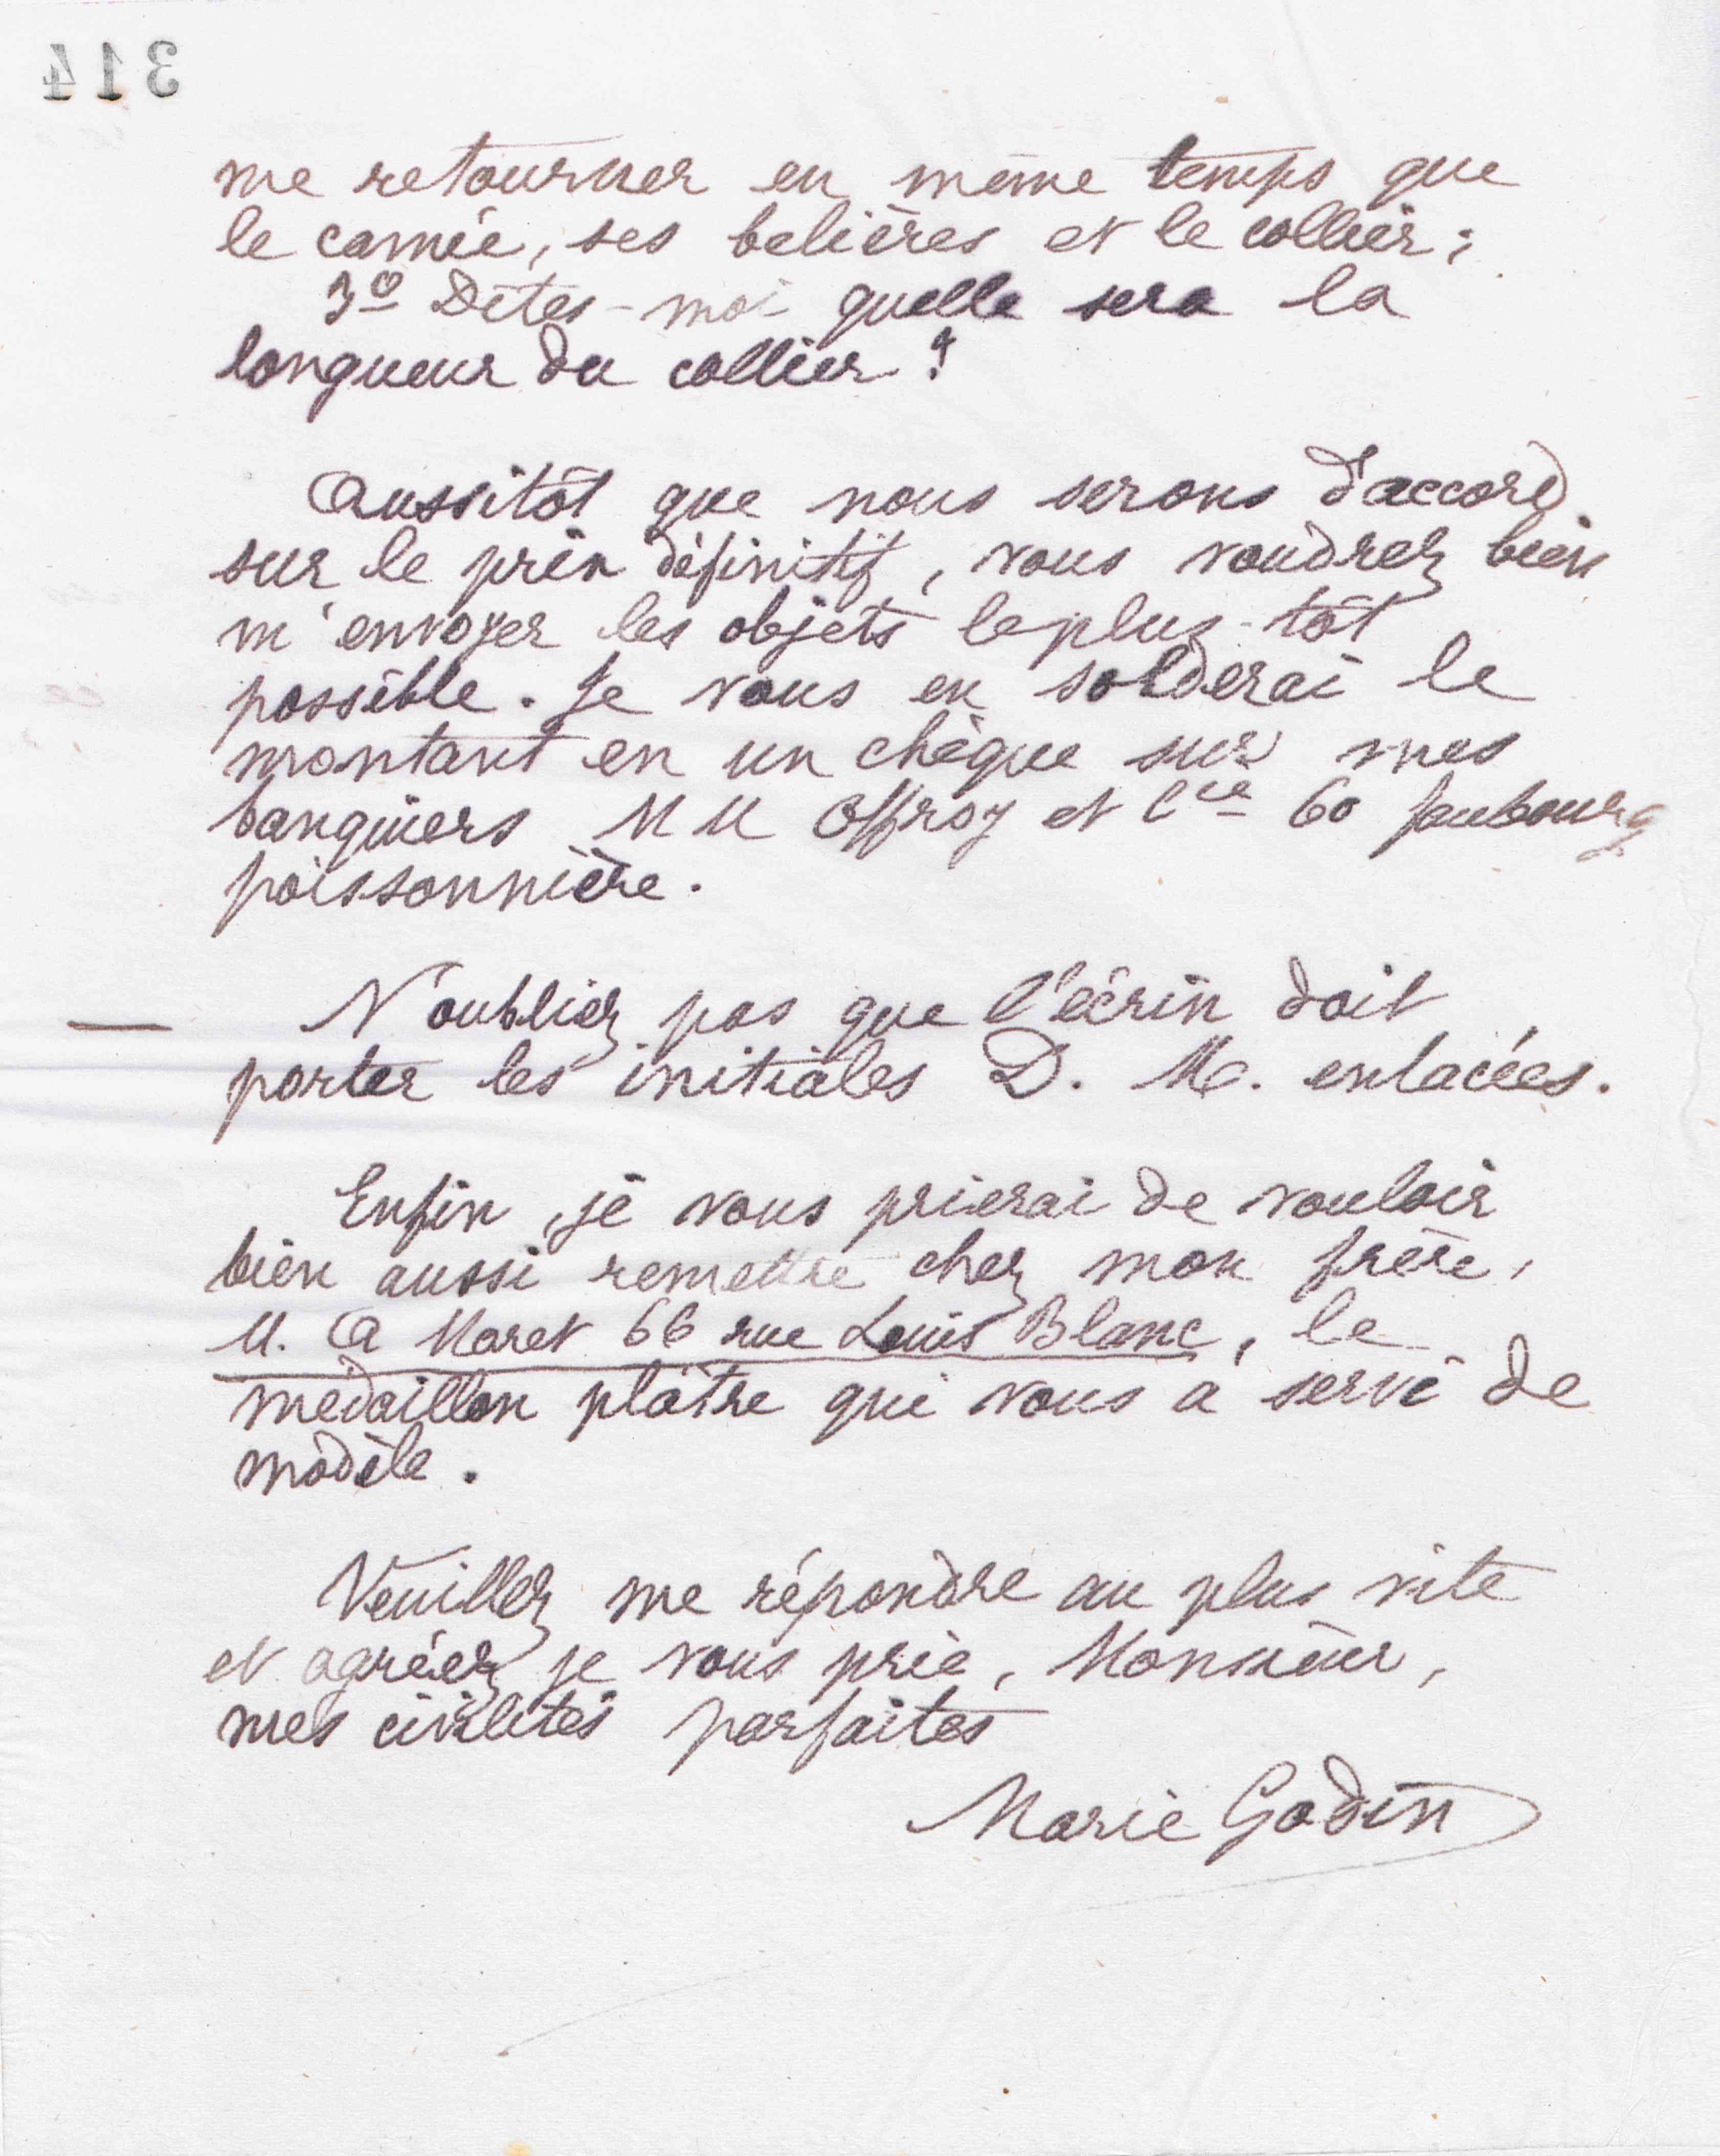 314
me retourner en même temps que
le camée, ses belières et le collier ;
3º Dites-moi quelle sera la
longueur du collier ?
Aussitôt que nous serons d'accord
sur le prix définitif, vous voudrez bien
m'envoyer les objets le plus tôt
possible. Je vous en solderai le
montant en un chèque sur mes
banquiers MM Offroy et Cie 60 faubourg
poissonnière.
— N'oubliez pas que l'écrin doit
porter les initiales D. M. enlacées.
Enfin, je vous prierai de vouloir
bien aussi remettre chez mon frère,
M. A Moret 66 rue Louis Blanc, le
médaillon plâtre qui vous a servi de
modèle.
Veuillez me répondre au plus vite
et agréez je vous prie, Monsieur,
mes civilités parfaites
Marie Godin